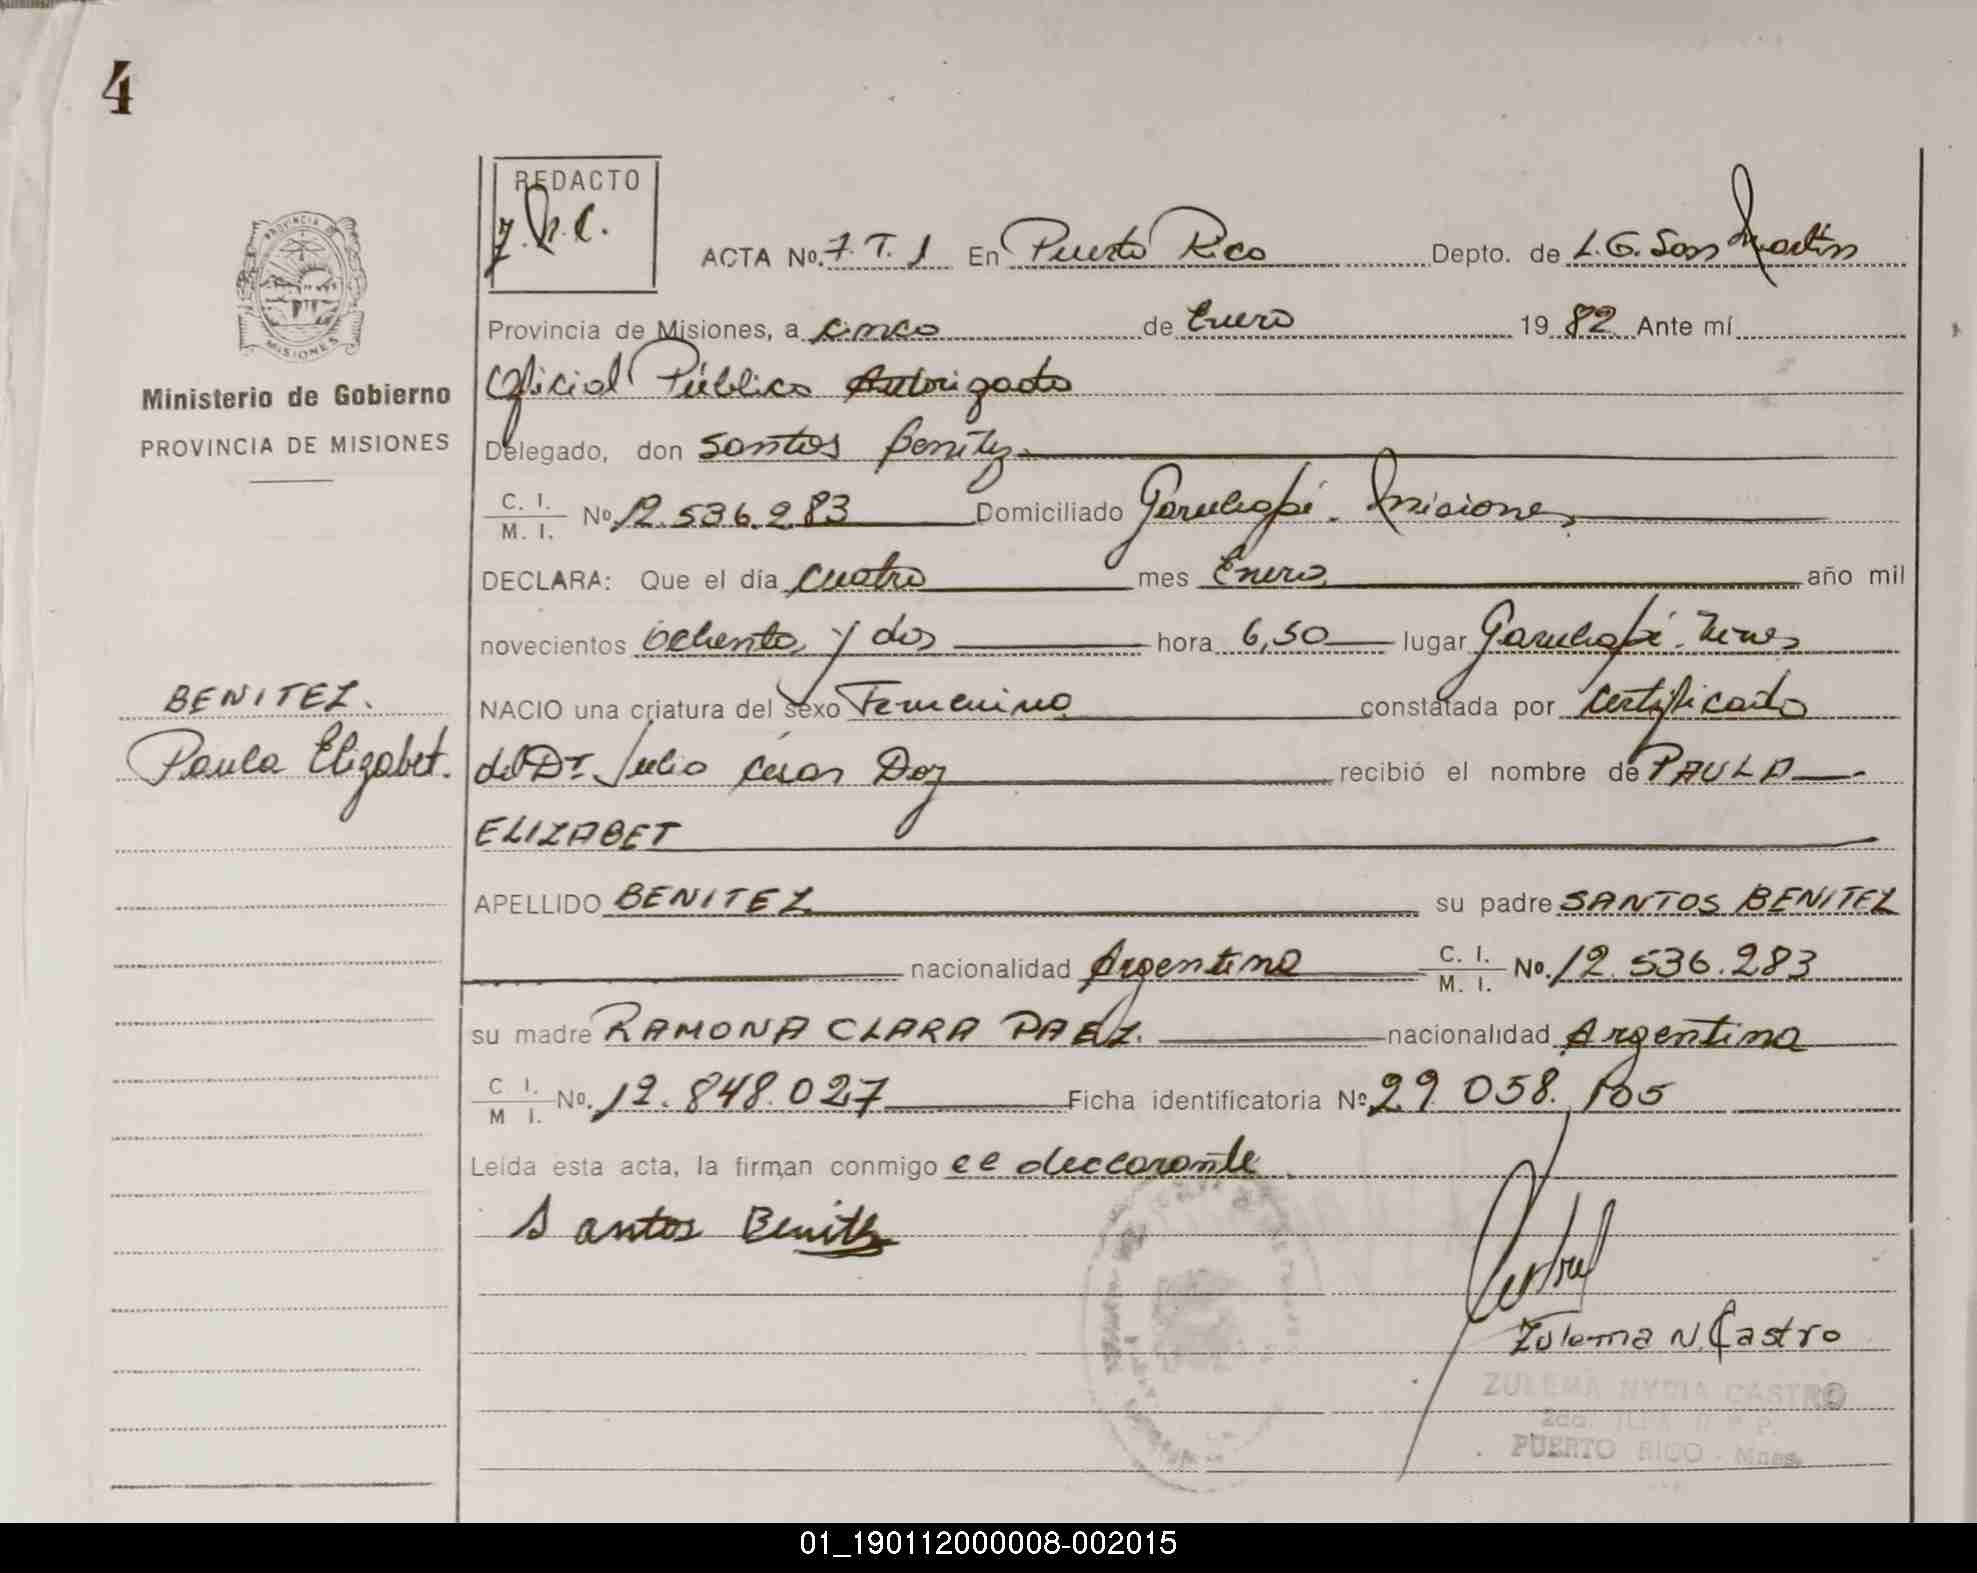 4
REDACTO
Z.N.C.
ACTA No. 7. T. 1 En Puerto Rico Depto. de L.G. San Martin
PROVINCIA
MISIONES
Provincia de Misiones, a cinco de Enero 1982 Ante mí
Ministerio de Gobierno
PROVINCIA DE MISIONES
Oficial Público Autorizado
Delegado, don Santos Benitez
C. I.
M. I. No 12.536.283 Domiciliado Garuhapé. Misiones
DECLARA: Que el día cuatro mes Enero año mil
novecientos ochenta y dos hora 6,50 lugar Garuhapé.
BENITEZ.
Paula Elizabet.
NACIO una criatura del sexo Femenino constatada por certificado
del Dr. Julio Cesar Doz recibió el nombre de PAULA
ELIZABET
APELLIDO BENITEZ su padre SANTOS BENITEZ
nacionalidad Argentina C. I. M. I. No. 12.536.283
su madre RAMONA CLARA PAEZ. nacionalidad Argentina
C I. M I. No. 12.848.027 Ficha identificatoria Nº 29 058. 105
Leída esta acta, la firman conmigo el declarante.
Santos Benitez
Zulema N. Castro
ZULEMA NYDIA CASTRO
PUERTO RICO - Mnes.
01_190112000008-002015